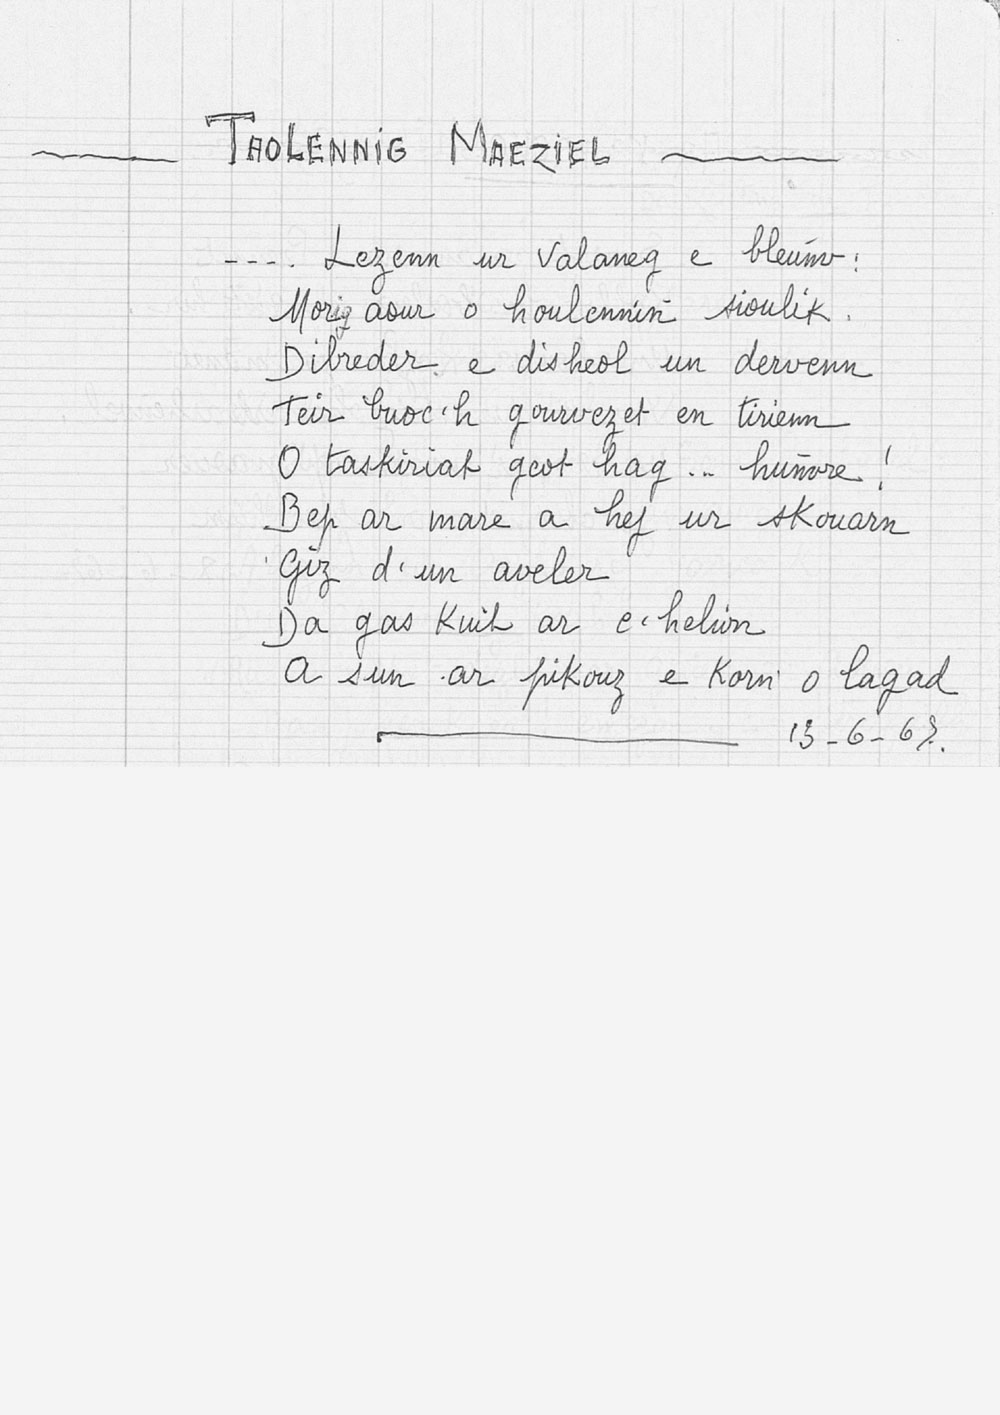 TAOLENNIG MAEZIEL
---. Lezenn ur valaneg e bleuñv:
Morig aour o houlenniñ sioulik.
Dibreder e disheol un dervenn
Teir buoc'h gourvezet en tirienn
O taskiriat geot hag ... huñvre!
Bep ar mare a hej ur skouarn
Giz d'un aveler
Da gas kuit ar c'helion
A sun ar pikouz e korn o lagad